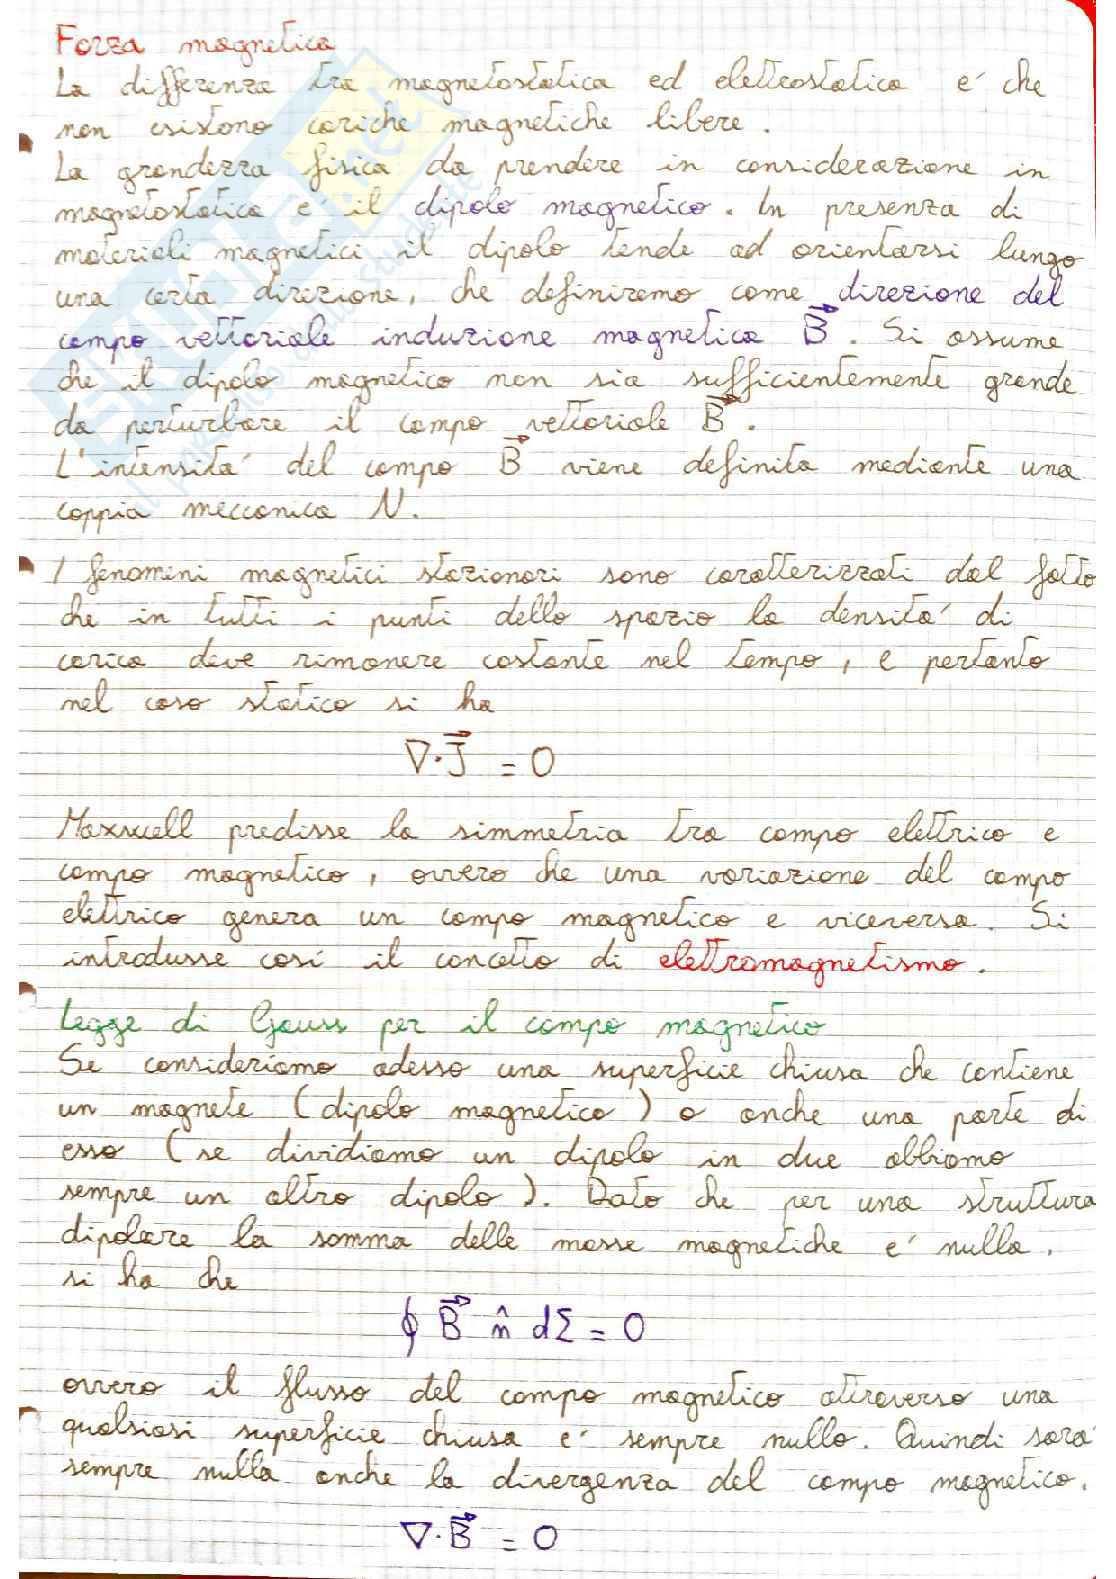 Forza magnetica
La differenza tra magnetostatica ed elettrostatica e' che
non esistono cariche magnetiche libere.
La grandezza fisica da prendere in considerazione in
magnetostatica e' il dipolo magnetico. In presenza di
materiali magnetici il dipolo tende ad orientarsi lungo
una certa direzione, che definiremo come direzione del
campo vettoriale induzione magnetica B⃗. Si assume
che il dipolo magnetico non sia sufficientemente grande
da perturbare il campo vettoriale B⃗.
L'intensita' del campo B⃗ viene definita mediante una
coppia meccanica N.
I fenomeni magnetici stazionari sono caratterizzati dal fatto
che in tutti i punti dello spazio la densita' di
carica deve rimanere costante nel tempo, e pertanto
nel caso statico si ha
∇·J⃗ = 0
Maxwell predisse la simmetria tra campo elettrico e
campo magnetico, ovvero che una variazione del campo
elettrico genera un campo magnetico e viceversa. Si
introdusse così il concetto di elettromagnetismo.
Legge di Gauss per il campo magnetico
Se consideriamo adesso una superficie chiusa che contiene
un magnete (dipolo magnetico) o anche una parte di
esso (se dividiamo un dipolo in due abbiamo
sempre un altro dipolo). Dato che per una struttura
dipolare la somma delle masse magnetiche e' nulla,
si ha che
∮ B⃗ n̂ dΣ = 0
ovvero il flusso del campo magnetico attraverso una
qualsiasi superficie chiusa e' sempre nullo. Quindi sara'
sempre nulla anche la divergenza del campo magnetico.
∇·B⃗ = 0